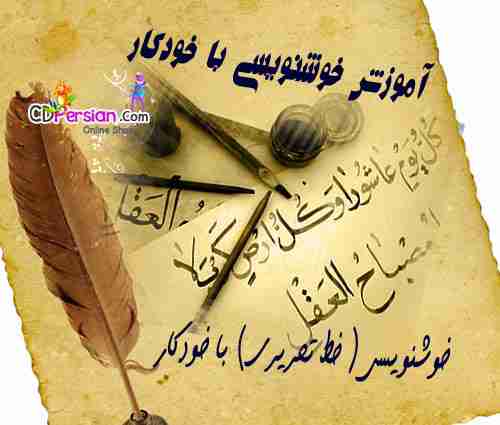 آموزش خوشنویسی با خودکار
CDPersian.com
Online Shop
كُلُّ يَوْمٍ عاشورا وَ كُلُّ اَرضٍ كَربَلا
مصباح العقل
العقل
خوشنویسی (خط تحریری) با خودکار